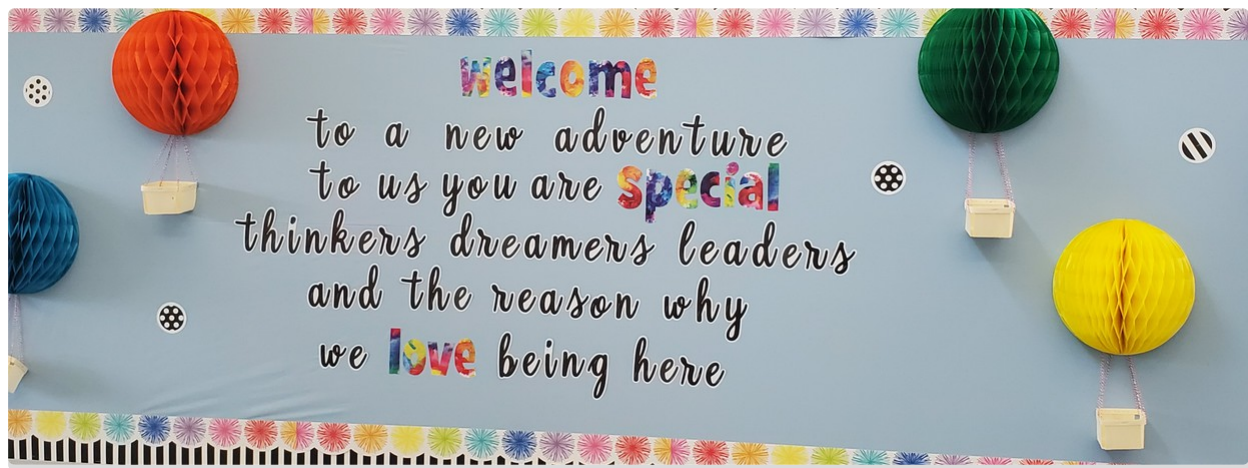 welcome
to a new adventure
to us you are special
thinkers dreamers leaders
and the reason why
we love being here